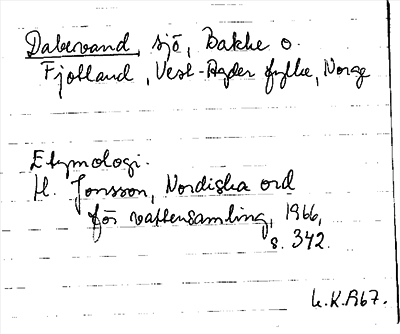 Dalsvand, sjö, Bakke o.
Fjotland, Vest-Agder fylke, Norge
Etymologi.
H. Jonsson, Nordiska ord
för vattensamling, 1966,
s. 342.